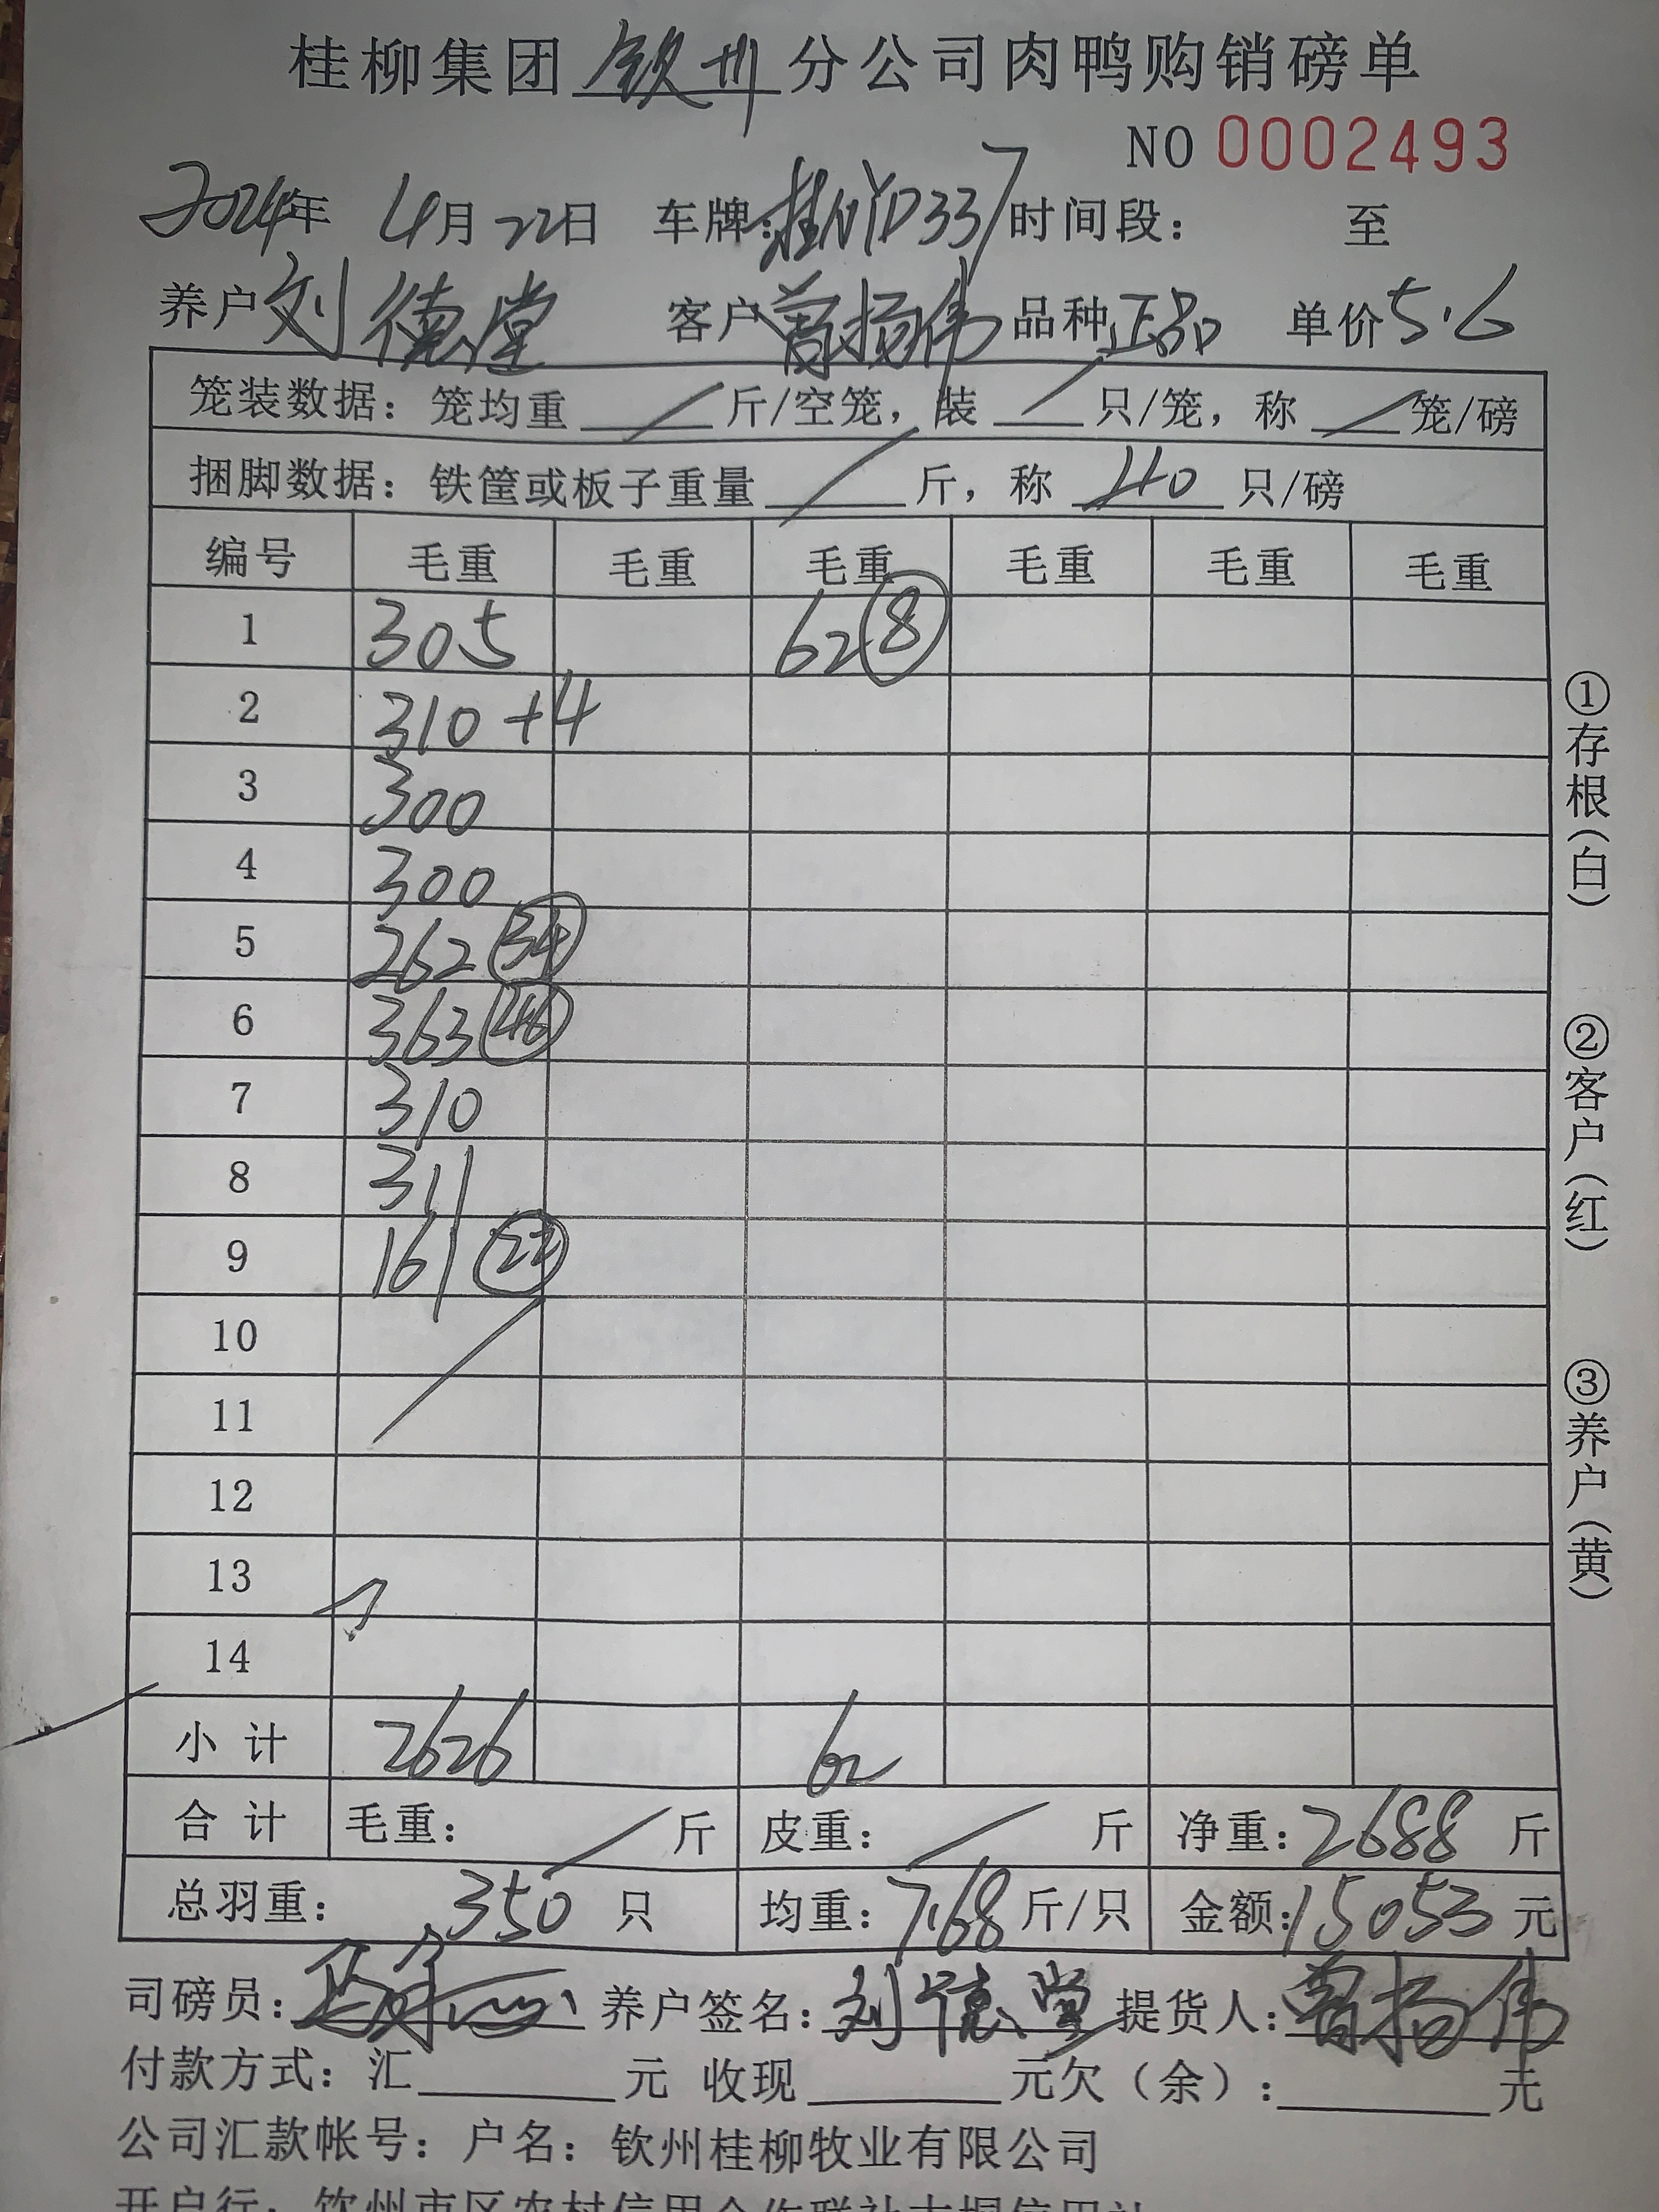 桂柳集团钦州分公司肉鸭购销磅单
NO 0002493
2024年 4月22日 车牌：桂NYD337 时间段： 至
养户刘德堂 客户曾扬伟 品种正品 单价5.6
笼装数据：笼均重 / 斤/空笼，装 / 只/笼，称 / 笼/磅
捆脚数据：铁筐或板子重量 / 斤，称 40 只/磅
编号 毛重 毛重 毛重 毛重 毛重 毛重
1 305 62 ⑧
2 310+4
3 300
4 300
5 262 34
6 363 46
7 310
8 311
9 161 22
10
11
12
13
14
小计 2626 62
合计 毛重： / 斤 皮重： / 斤 净重：2688 斤
总羽重：350 只 均重：7.68 斤/只 金额：15053 元
司磅员： 养户签名：刘德堂 提货人：曾扬伟
付款方式：汇 元 收现 元欠（余）： 元
公司汇款帐号：户名：钦州桂柳牧业有限公司
开户行：钦州市区农村信用合作联社
①存根（白）
②客户（红）
③养户（黄）